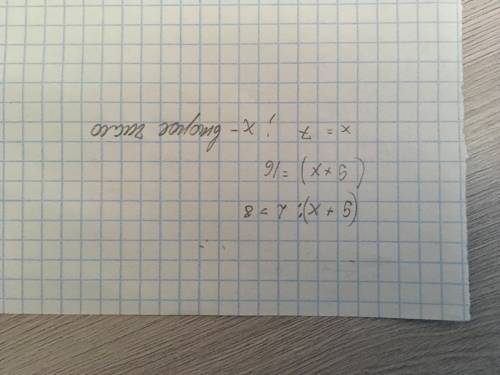 (9 + x) : 2 = 8
(9 + x) = 16
x = 7 ; x - второе число